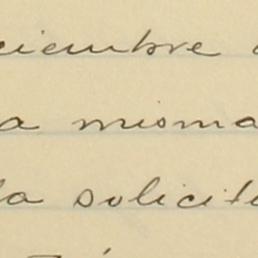 ciembre
a misma
la solicit